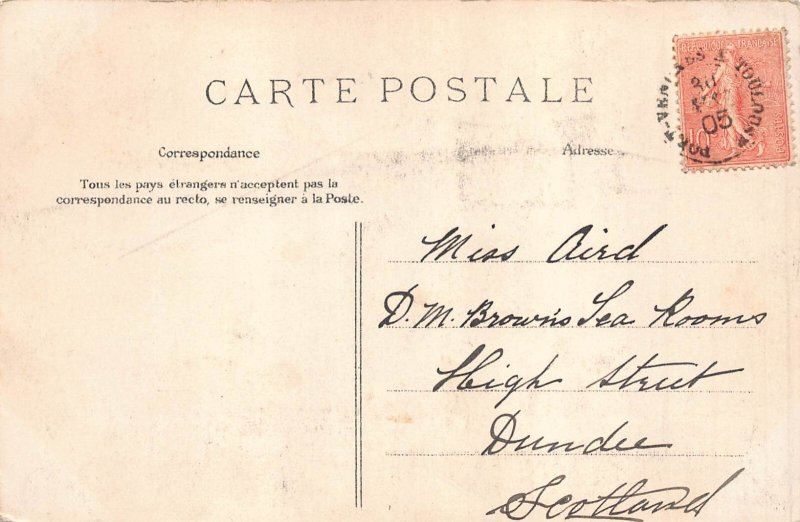 CARTE POSTALE
Correspondance
Adresse
Tous les pays étrangers n'acceptent pas la
correspondance au recto, se renseigner à la Poste.
REPUBLIQUE FRANÇAISE
10
POSTES
PORT-VENDRES A TOULOUSE
30
05
Miss Aird
D. M. Brown's Tea Rooms
High Street
Dundee
Scotland